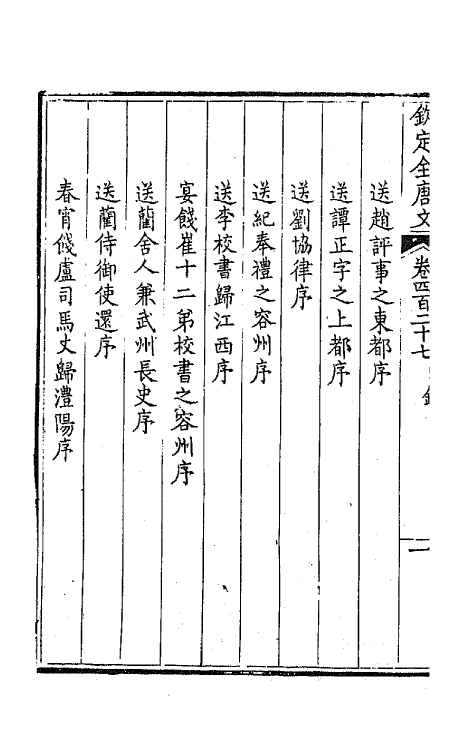 欽定全唐文 卷四百二十七
一
送趙評事之東都序
送譚正字之上都序
送劉協律序
送紀奉禮之容州序
送李校書歸江西序
宴餞崔十二弟校書之容州序
送藺舍人兼武州長史序
送藺侍御使還序
春宵餞盧司馬丈歸澧陽序